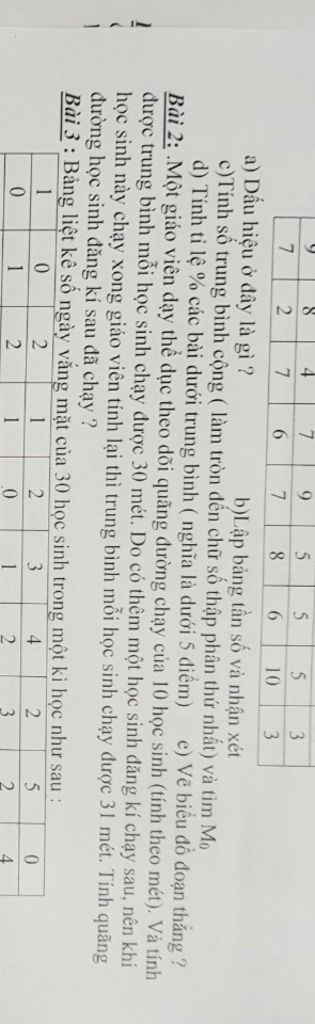 9 8 4 7 9 5 5 5 3
7 2 7 6 7 8 6 10 3
a) Dấu hiệu ở đây là gì ? b)Lập bảng tần số và nhận xét
c)Tính số trung bình cộng ( làm tròn đến chữ số thập phân thứ nhất) và tìm M₀
d) Tính tỉ lệ % các bài dưới trung bình ( nghĩa là dưới 5 điểm) e) Vẽ biểu đồ đoạn thẳng ?
Bài 2: .Một giáo viên dạy thể dục theo dõi quãng đường chạy của 10 học sinh (tính theo mét). Và tính
được trung bình mỗi học sinh chạy được 30 mét. Do có thêm một học sinh đăng kí chạy sau, nên khi
học sinh này chạy xong giáo viên tính lại thì trung bình mỗi học sinh chạy được 31 mét. Tính quãng
đường học sinh đăng kí sau đã chạy ?
Bài 3 : Bảng liệt kê số ngày vắng mặt của 30 học sinh trong một kì học như sau :
1 0 2 1 2 3 4 2 5 0
0 1 2 1 0 1 2 3 2 4